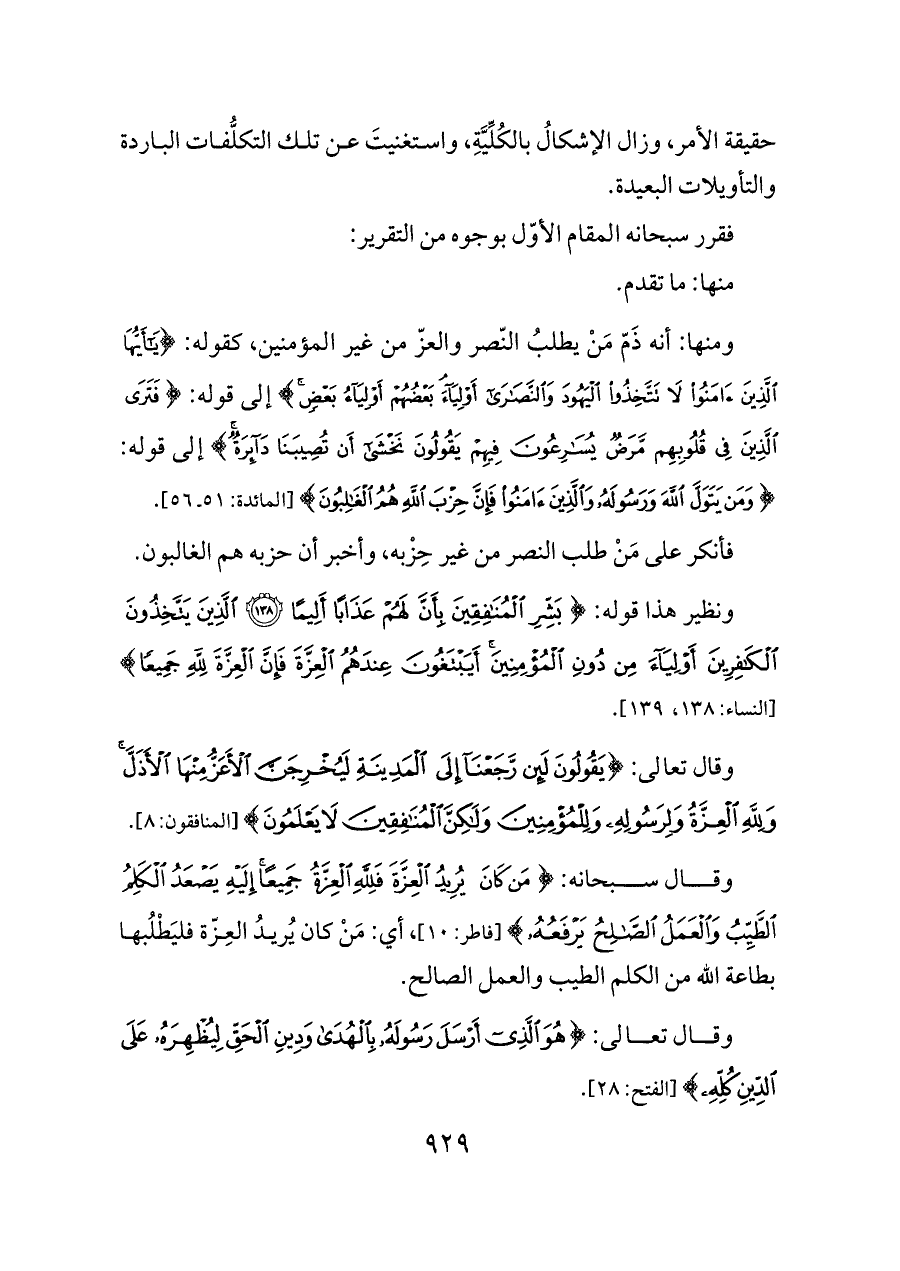 حقيقة الأمر، وزال الإشكالُ بالكُلِّيَّةِ، واستغنيتَ عن تلك التكلُّفات الباردة
والتأويلات البعيدة.
فقرر سبحانه المقام الأوّل بوجوه من التقرير:
منها: ما تقدم.
ومنها: أنه ذَمّ مَنْ يطلبُ النّصر والعزّ من غير المؤمنين، كقوله: ﴿يَـٰٓأَيُّهَا
ٱلَّذِينَ ءَامَنُوا۟ لَا تَتَّخِذُوا۟ ٱلْيَهُودَ وَٱلنَّصَـٰرَىٰٓ أَوْلِيَآءَ ۘ بَعْضُهُمْ أَوْلِيَآءُ بَعْضٍ ۚ﴾ إلى قوله: ﴿فَتَرَى
ٱلَّذِينَ فِى قُلُوبِهِم مَّرَضٌ يُسَـٰرِعُونَ فِيهِمْ يَقُولُونَ نَخْشَىٰٓ أَن تُصِيبَنَا دَآئِرَةٌ ۚ﴾ إلى قوله:
﴿وَمَن يَتَوَلَّ ٱللَّهَ وَرَسُولَهُۥ وَٱلَّذِينَ ءَامَنُوا۟ فَإِنَّ حِزْبَ ٱللَّهِ هُمُ ٱلْغَـٰلِبُونَ﴾ [المائدة: ٥١ـ ٥٦].
فأنكر على مَنْ طلب النصر من غير حِزْبه، وأخبر أن حزبه هم الغالبون.
ونظير هذا قوله: ﴿بَشِّرِ ٱلْمُنَـٰفِقِينَ بِأَنَّ لَهُمْ عَذَابًا أَلِيمًا ١٣٨ ٱلَّذِينَ يَتَّخِذُونَ
ٱلْكَـٰفِرِينَ أَوْلِيَآءَ مِن دُونِ ٱلْمُؤْمِنِينَ ۚ أَيَبْتَغُونَ عِندَهُمُ ٱلْعِزَّةَ فَإِنَّ ٱلْعِزَّةَ لِلَّهِ جَمِيعًا﴾
[النساء: ١٣٨، ١٣٩].
وقال تعالى: ﴿يَقُولُونَ لَئِن رَّجَعْنَآ إِلَى ٱلْمَدِينَةِ لَيُخْرِجَنَّ ٱلْأَعَزُّ مِنْهَا ٱلْأَذَلَّ ۚ
وَلِلَّهِ ٱلْعِزَّةُ وَلِرَسُولِهِۦ وَلِلْمُؤْمِنِينَ وَلَـٰكِنَّ ٱلْمُنَـٰفِقِينَ لَا يَعْلَمُونَ﴾ [المنافقون: ٨].
وقال سبحانه: ﴿مَن كَانَ يُرِيدُ ٱلْعِزَّةَ فَلِلَّهِ ٱلْعِزَّةُ جَمِيعًا ۚ إِلَيْهِ يَصْعَدُ ٱلْكَلِمُ
ٱلطَّيِّبُ وَٱلْعَمَلُ ٱلصَّـٰلِحُ يَرْفَعُهُۥ﴾ [فاطر: ١٠]، أي: مَنْ كان يُريدُ العِزّة فليَطْلُبها
بطاعة الله من الكلم الطيب والعمل الصالح.
وقال تعالى: ﴿هُوَ ٱلَّذِىٓ أَرْسَلَ رَسُولَهُۥ بِٱلْهُدَىٰ وَدِينِ ٱلْحَقِّ لِيُظْهِرَهُۥ عَلَى
ٱلدِّينِ كُلِّهِۦ﴾ [الفتح: ٢٨].
٩٢٩